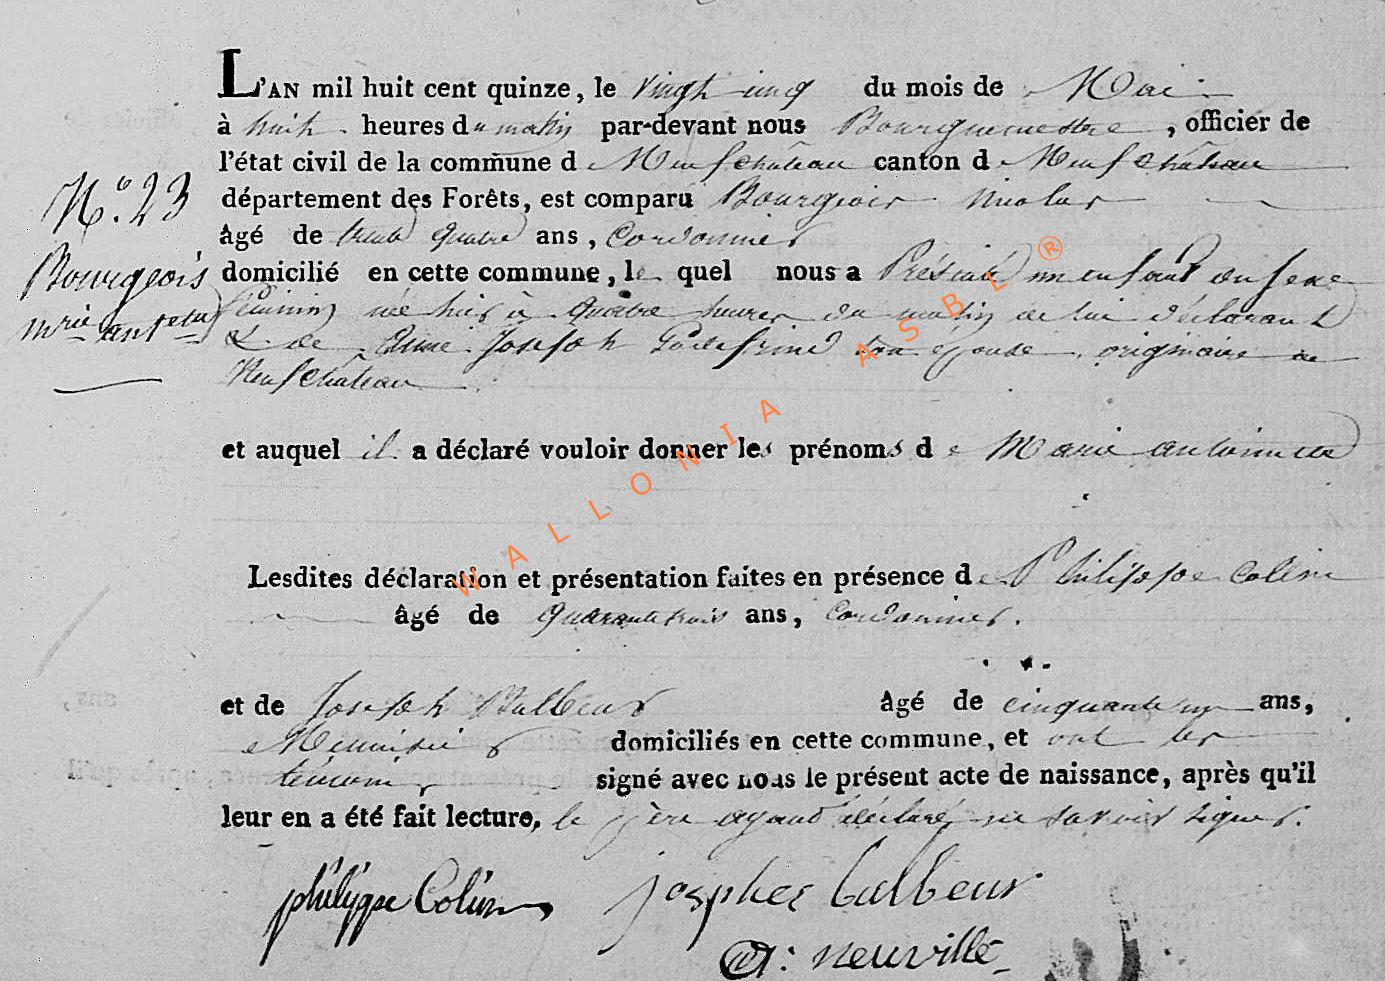 L'AN mil huit cent quinze, le vingt cinq du mois de Mai
à huit heures du matin par-devant nous Bourguemestre, officier de
l'état civil de la commune de Neufchâteau canton de Neufchâteau
département des Forêts, est comparu Bourgeois Nicolas
âgé de trente quatre ans, Cordonnier
domicilié en cette commune, le quel nous a Présenté un enfant du sexe
féminin née hier à quatre heures du matin de lui déclarant
& de Anne Joseph son epouse, originaire de
Neufchâteau
N.° 23
Bourgeois
mrie antetu
et auquel il a déclaré vouloir donner les prénoms de Marie antoinette
Lesdites déclaration et présentation faites en présence de Philippe Colin
âgé de quarante trois ans, Cordonnier.
et de Joseph âgé de cinquante un ans,
Menuisier domiciliés en cette commune, et ont les
témoins signé avec nous le présent acte de naissance, après qu'il
leur en a été fait lecture, le père ayant déclaré ne savoir signer.
philippe Colin josphes balbeur
neuville
WALLONIA ASBL ®